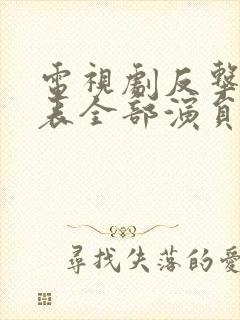 電視劇反擊
表全部演員
尋找失落的愛